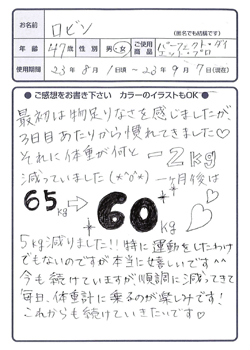 お名前 ロビン
(匿名でも結構です)
年齢 47才 性別 男・女 ご使用商品 パーフェクト・ダイエット・プロ
使用期間 23年8月1日頃~23年9月7日(現在)
●ご感想をお書き下さい カラーのイラストもOK●
最初は物足りなさを感じましたが、
3日目あたりから慣れてきました♡
それに体重が何と -2kg
減っていました(*^o^*) 一ヶ月後は
65kg → 60kg ♡
5kg減りました!!特に運動をしたわけ
でもないのですが本当に嬉しいです^^
今も続けていますが、順調に減ってきて
毎日、体重計に乗るのが楽しみです!
これからも続けていきたいです♡